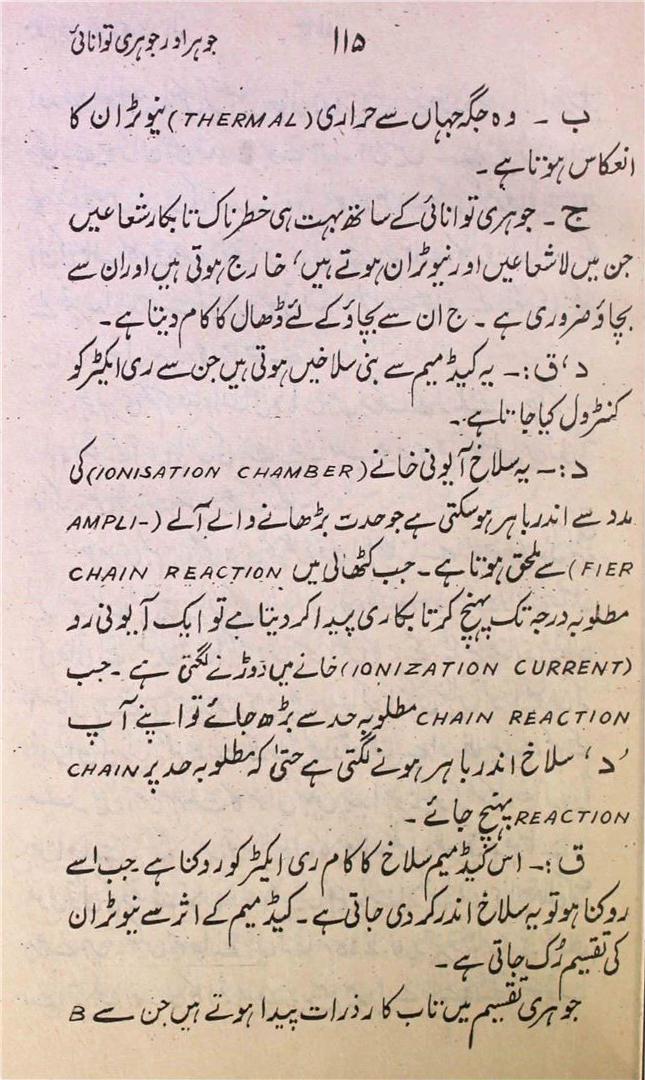 جوہر اور جوہری توانائی ۱۱۵
ب ۔ وہ جگہ جہاں سے حراری (THERMAL) نیوٹران کا
انعکاس ہوتا ہے ۔
ج ۔ جوہری توانائی کے ساتھ بہت ہی خطرناک تابکار شعاعیں
جن میں لاشعاعیں اور نیوٹران ہوتے ہیں‘ خارج ہوتی ہیں اور ان سے
بچاؤ ضروری ہے ۔ ج ان سے بچاؤ کے لئے ڈھال کا کام دیتا ہے ۔
د‘ ق :۔ یہ کیڈمیم سے بنی سلاخیں ہوتی ہیں جن سے ری ایکٹر کو
کنٹرول کیا جاتا ہے ۔
د :۔ یہ سلاخ آیونی خانے (IONISATION CHAMBER) کی
مدد سے اندر باہر ہو سکتی ہے جو حدت بڑھانے والے آلے (AMPLI-
FIER) سے ملحق ہوتا ہے ۔ جب کٹھالی میں CHAIN REACTION
مطلوبہ درجہ تک پہنچ کر تابکاری پیدا کر دیتا ہے تو ایک آیونی رو
(IONIZATION CURRENT) خانے میں دوڑنے لگتی ہے ۔ جب
CHAIN REACTION مطلوبہ حد سے بڑھ جائے تو اپنے آپ
’د‘ سلاخ اندر باہر ہونے لگتی ہے حتیٰ کہ مطلوبہ حد پر CHAIN
REACTION پہنچ جائے ۔
ق :۔ اس کیڈمیم سلاخ کا کام ری ایکٹر کو روکنا ہے جب اسے
روکنا ہو تو یہ سلاخ اندر کر دی جاتی ہے ۔ کیڈمیم کے اثر سے نیوٹران
کی تقسیم رُک جاتی ہے ۔
جوہری تقسیم میں تاب کار ذرات پیدا ہوتے ہیں جن سے B